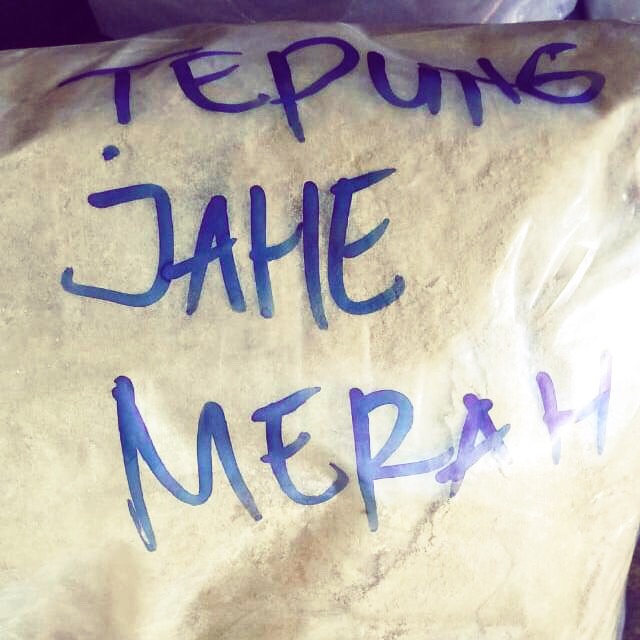 TEPUNG
JAHE
MERAH